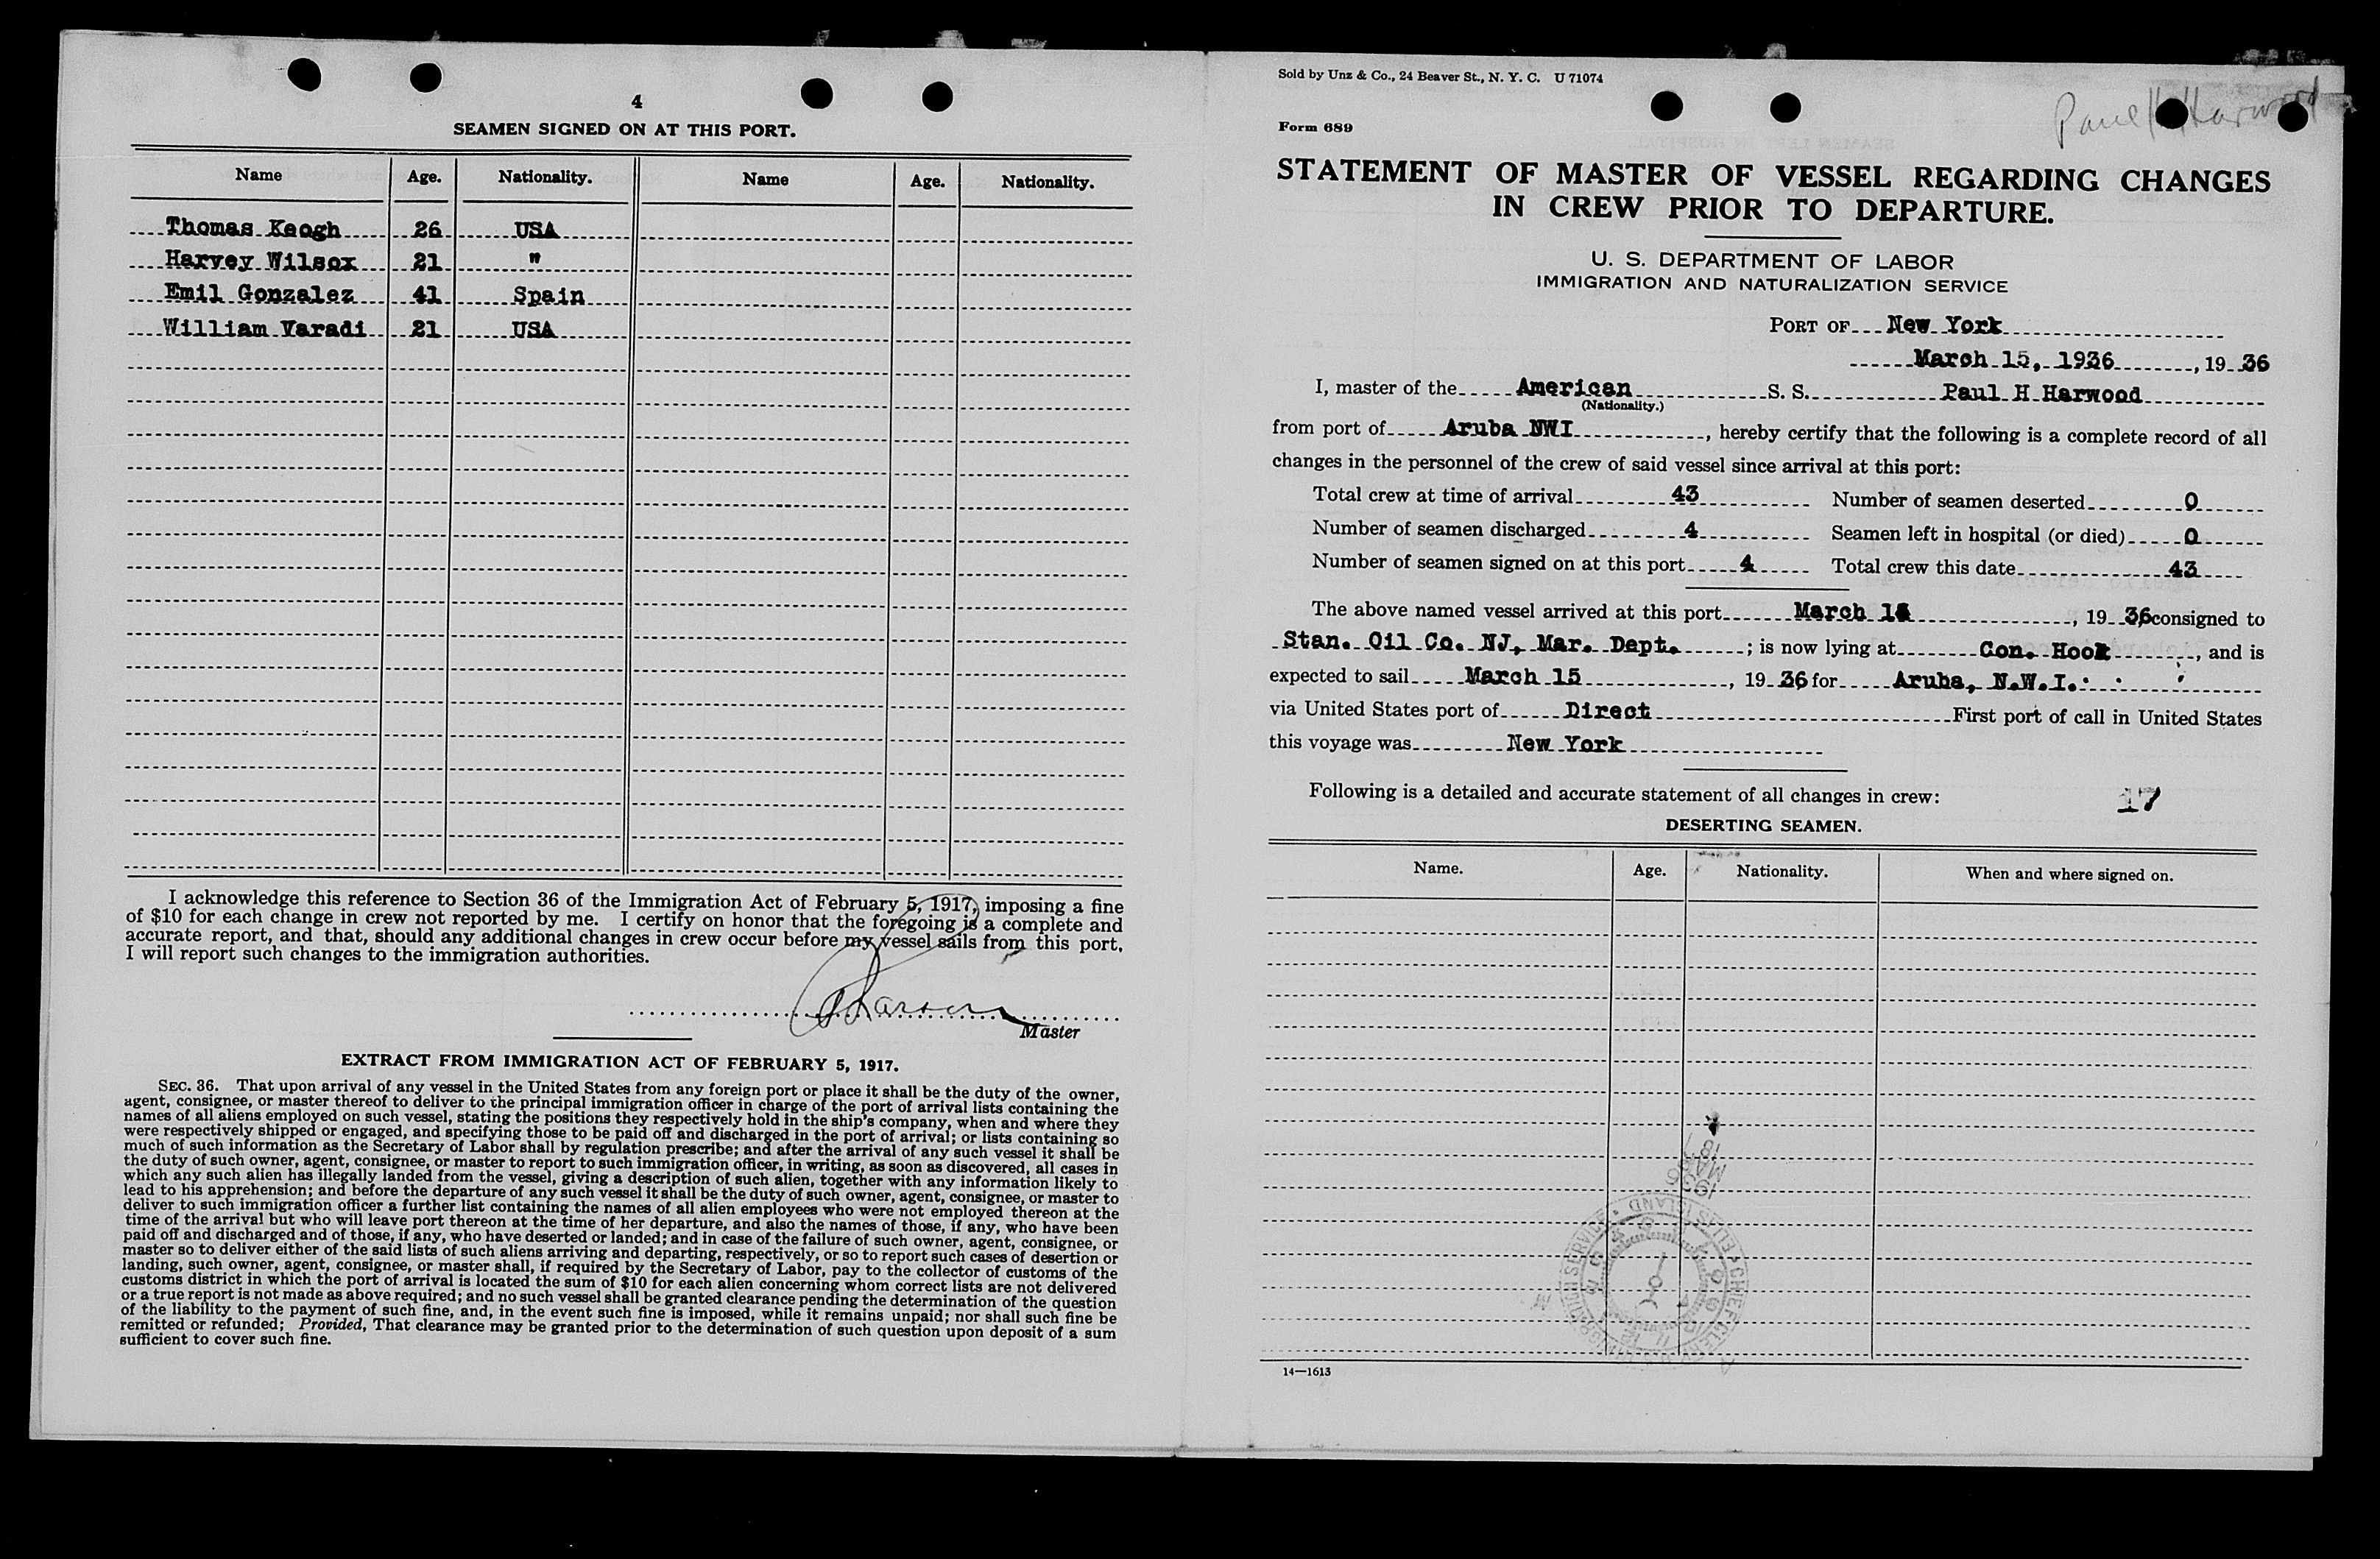 4
SEAMEN SIGNED ON AT THIS PORT.
Name Age. Nationality. Name Age. Nationality.
Thomas Keogh 26 USA
Harvey Wilsox 21 "
Emil Gonzalez 41 Spain
William Varadi 21 USA
I acknowledge this reference to Section 36 of the Immigration Act of February 5, 1917, imposing a fine
of $10 for each change in crew not reported by me. I certify on honor that the foregoing is a complete and
accurate report, and that, should any additional changes in crew occur before my vessel sails from this port,
I will report such changes to the immigration authorities.
Master
EXTRACT FROM IMMIGRATION ACT OF FEBRUARY 5, 1917.
SEC. 36. That upon arrival of any vessel in the United States from any foreign port or place it shall be the duty of the owner,
agent, consignee, or master thereof to deliver to the principal immigration officer in charge of the port of arrival lists containing the
names of all aliens employed on such vessel, stating the positions they respectively hold in the ship's company, when and where they
were respectively shipped or engaged, and specifying those to be paid off and discharged in the port of arrival; or lists containing so
much of such information as the Secretary of Labor shall by regulation prescribe; and after the arrival of any such vessel it shall be
the duty of such owner, agent, consignee, or master to report to such immigration officer, in writing, as soon as discovered, all cases in
which any such alien has illegally landed from the vessel, giving a description of such alien, together with any information likely to
lead to his apprehension; and before the departure of any such vessel it shall be the duty of such owner, agent, consignee, or master to
deliver to such immigration officer a further list containing the names of all alien employees who were not employed thereon at the
time of the arrival but who will leave port thereon at the time of her departure, and also the names of those, if any, who have been
paid off and discharged and of those, if any, who have deserted or landed; and in case of the failure of such owner, agent, consignee, or
master so to deliver either of the said lists of such aliens arriving and departing, respectively, or so to report such cases of desertion or
landing, such owner, agent, consignee, or master shall, if required by the Secretary of Labor, pay to the collector of customs of the
customs district in which the port of arrival is located the sum of $10 for each alien concerning whom correct lists are not delivered
or a true report is not made as above required; and no such vessel shall be granted clearance pending the determination of the question
of the liability to the payment of such fine, and, in the event such fine is imposed, while it remains unpaid; nor shall such fine be
remitted or refunded; Provided, That clearance may be granted prior to the determination of such question upon deposit of a sum
sufficient to cover such fine.
Sold by Unz & Co., 24 Beaver St., N. Y. C. U 71074
Paul H Harwood
Form 689
STATEMENT OF MASTER OF VESSEL REGARDING CHANGES
IN CREW PRIOR TO DEPARTURE.
U. S. DEPARTMENT OF LABOR
IMMIGRATION AND NATURALIZATION SERVICE
PORT OF New York
March 15, 1936, 19 36
I, master of the American S. S. Paul H Harwood
(Nationality.)
from port of Aruba NWI, hereby certify that the following is a complete record of all
changes in the personnel of the crew of said vessel since arrival at this port:
Total crew at time of arrival 43 Number of seamen deserted 0
Number of seamen discharged 4 Seamen left in hospital (or died) 0
Number of seamen signed on at this port 4 Total crew this date 43
The above named vessel arrived at this port March, 19 36 consigned to
Stan. Oil Co. NJ, Mar. Dept. ; is now lying at Con. Hook, and is
expected to sail March 15, 19 36 for Aruba, N.W.I.
via United States port of Direct First port of call in United States
this voyage was New York
Following is a detailed and accurate statement of all changes in crew: 17
DESERTING SEAMEN.
Name. Age. Nationality. When and where signed on.
1936
MAR
18
ELLIS ISLAND
14—1613